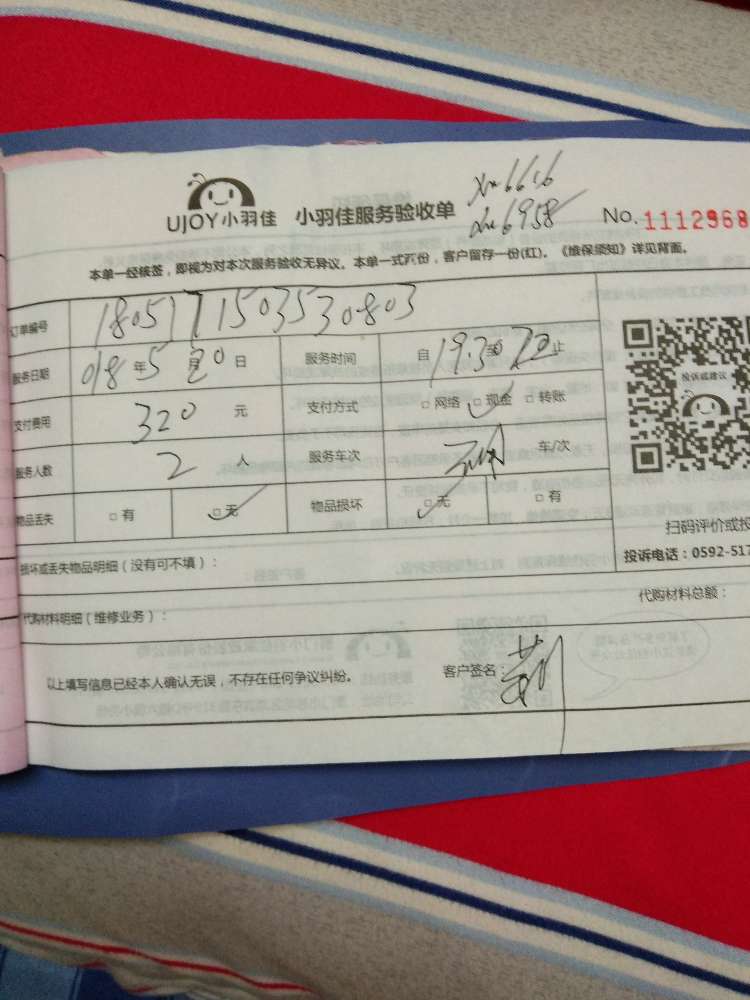 xm6616
UJOY小羽佳 小羽佳服务验收单 xm6958 No. 1112968
本单一经核签，即视为对本次服务验收无异议。本单一式两份，客户留存一份(红)。《维保须知》详见背面。
订单编号 180517150353080​3
服务日期 018年5月20日 服务时间 自19:30至20止
支付费用 320元 支付方式 □网络 □现金 □转账
投诉或建议
服务人数 2人 服务车次 车/次
物品丢失 □有 □无 物品损坏 □无 □有
扫码评价或投
损坏或丢失物品明细（没有可不填）：
投诉电话：0592-517
代购材料明细（维修业务）：
代购材料总额：
以上填写信息已经本人确认无误，不存在任何争议纠纷。 客户签名：